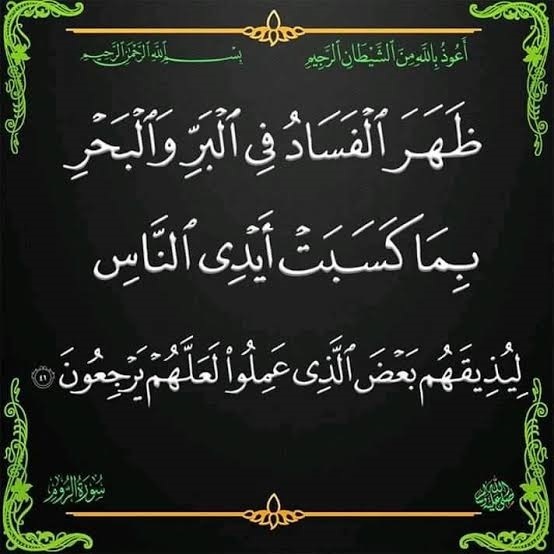 أَعُوذُ بِاللَّهِ مِنَ الشَّيْطَانِ الرَّجِيمِ بِسْمِ اللَّهِ الرَّحْمَنِ الرَّحِيمِ
ظَهَرَ ٱلْفَسَادُ فِى ٱلْبَرِّ وَٱلْبَحْرِ
بِمَا كَسَبَتْ أَيْدِى ٱلنَّاسِ
لِيُذِيقَهُم بَعْضَ ٱلَّذِى عَمِلُوا۟ لَعَلَّهُمْ يَرْجِعُونَ ٤١
سُورَةُ الرُّومِ ﷺ